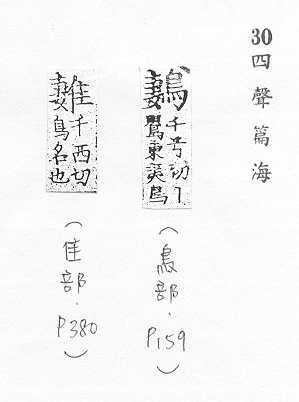 30 四聲篇海
鶈
千兮切丨
東夷鳥
(鳥部.P159)
千西切
鳥名也
(隹部.P380)